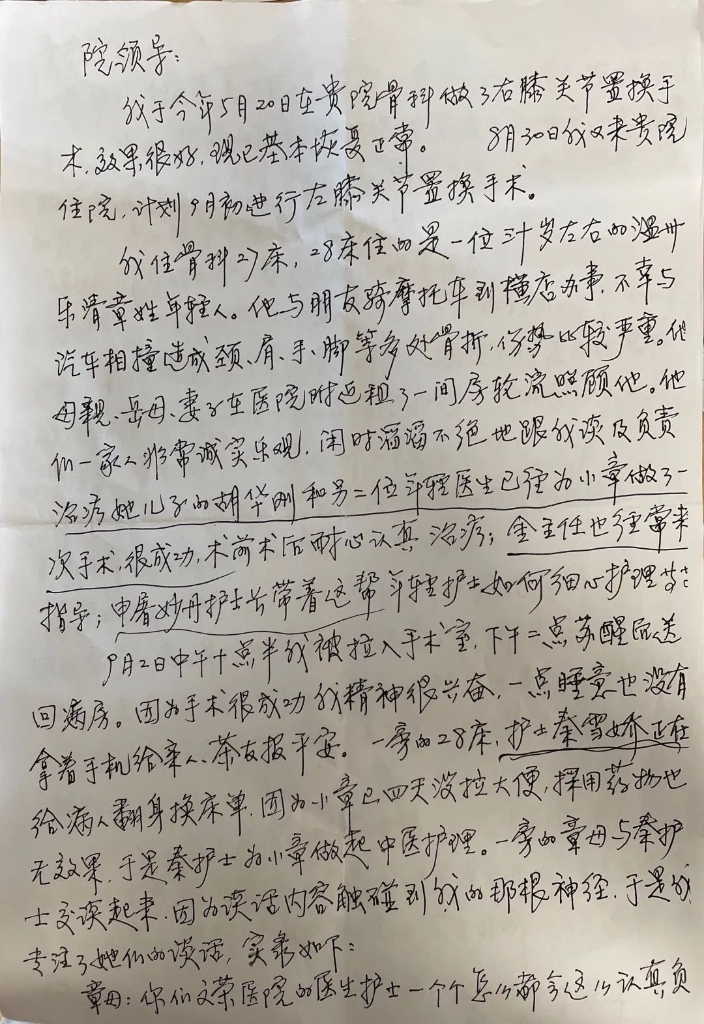 院领导：
我于今年5月20日在贵院骨科做了右膝关节置换手
术，效果很好，现已基本恢复正常。 8月30日我又来贵院
住院，计划9月初进行左膝关节置换手术。
我住骨科27床，28床住的是一位三十岁左右的温州
乐清章姓年轻人。他与朋友骑摩托车到横店办事，不幸与
汽车相撞造成颈、肩、手、脚等多处骨折，伤势比较严重。他
母親、岳母、妻子在医院附近租了一间房轮流照顾他。他
们一家人非常诚实乐观，闲时滔滔不绝地跟我谈及负责
治疗她儿子的胡华刚和另二位年轻医生已经为小章做了一
次手术，很成功，术前术后耐心认真治疗；金主任也经常来
指导；申屠妙丹护士长带着这帮年轻护士如何细心护理等等
9月2日中午十点半我被拉入手术室，下午二点苏醒后送
回病房。因为手术很成功我精神很兴奋，一点睡意也没有
拿着手机给亲人、茶友报平安。一旁的28床，护士秦雪娇正在
给病人翻身换床单，因为小章已四天没拉大便，採用药物也
无效果，于是秦护士为小章做起中医护理。一旁的章母与秦护
士交谈起来，因为谈话内容触碰到我的那根神经，于是我
专注了她们的谈话，实录如下：
章母：你们文荣医院的医生护士一个个怎么都会这么认真负